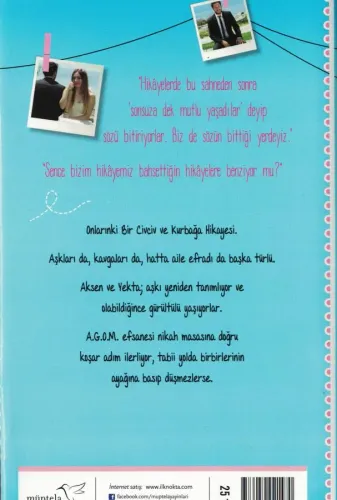 "Hikâyelerde bu sahneden sonra
'sonsuza dek mutlu yaşadılar' deyip
sözü bitiriyorlar. Biz de sözün bittiği yerdeyiz."
"Sence bizim hikâyemiz bahsettiğin hikâyelere benziyor mu?"
Onlarınki Bir Civciv ve Kurbağa Hikayesi.
Aşkları da, kavgaları da, hatta aile efradı da başka türlü.
Aksen ve Yekta; aşkı yeniden tanımlıyor ve
olabildiğince gürültülü yaşıyorlar.
A.G.O.M. efsanesi nikah masasına doğru
koşar adım ilerliyor, tabii yolda birbirlerinin
ayağına basıp düşmezlerse.
müptela
İnternet satış: www.ilknokta.com
facebook.com/muptelayayinlari
25